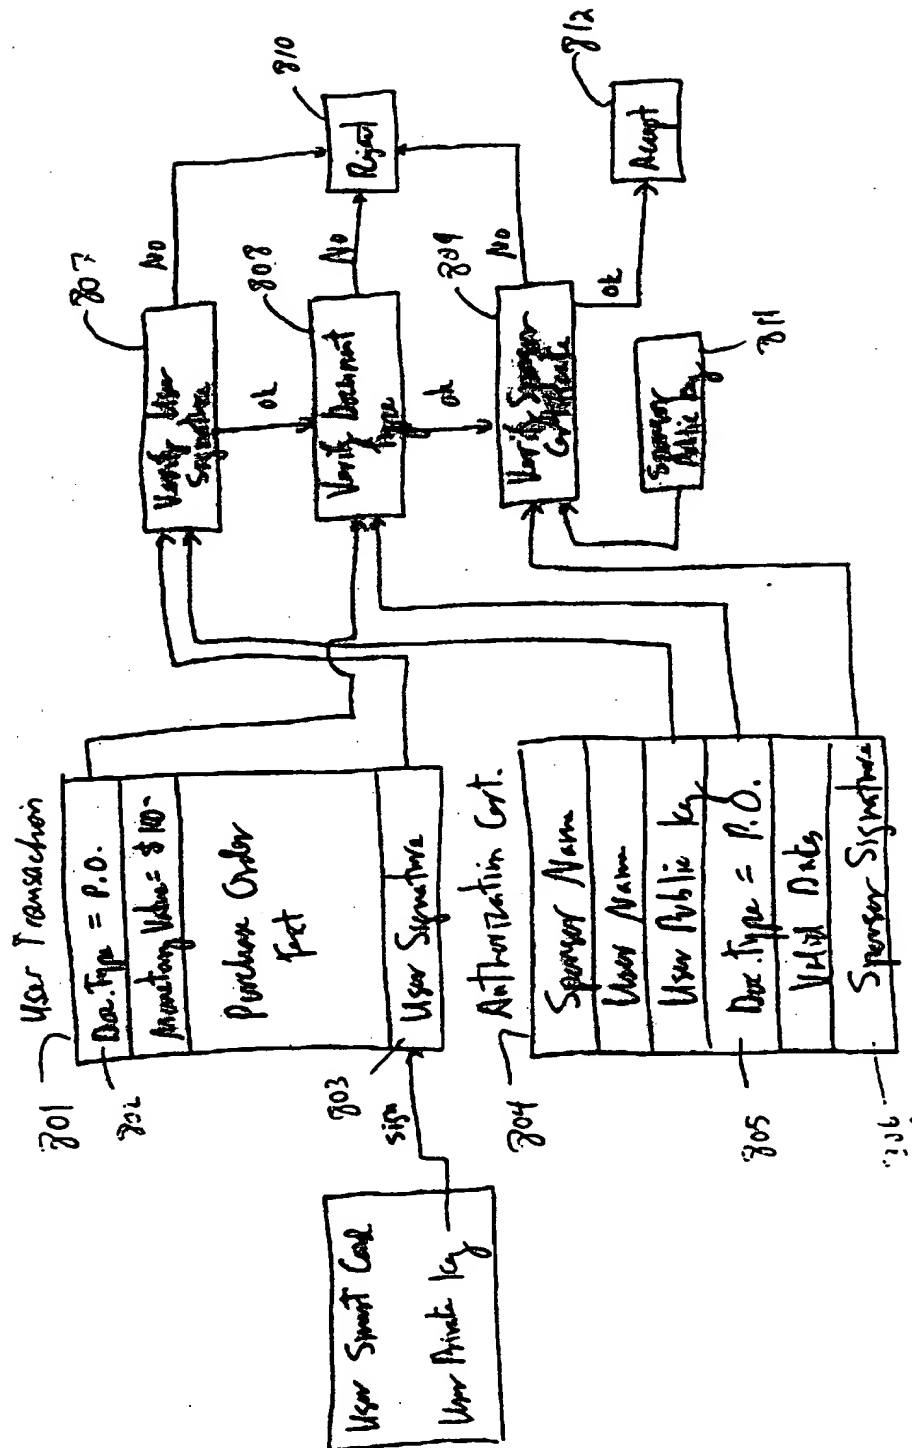 User Smart Card
User Private Key
sign
801
User Transaction
802
Doc. Type = P.O.
Monetary Value = $
Purchase Order
Text
803
User Signature
804
Authorization Cert.
Sponsor Name
User Name
User Public Key
805
Doc. Type = P.O.
Valid Dates
Sponsor Signature
807
Verify User
Signature
No
OK
808
Verify Document
Type
No
OK
809
Verify Sponsor
Certificate
No
OK
810
Reject
Sponsor
Public Key
811
812
Accept